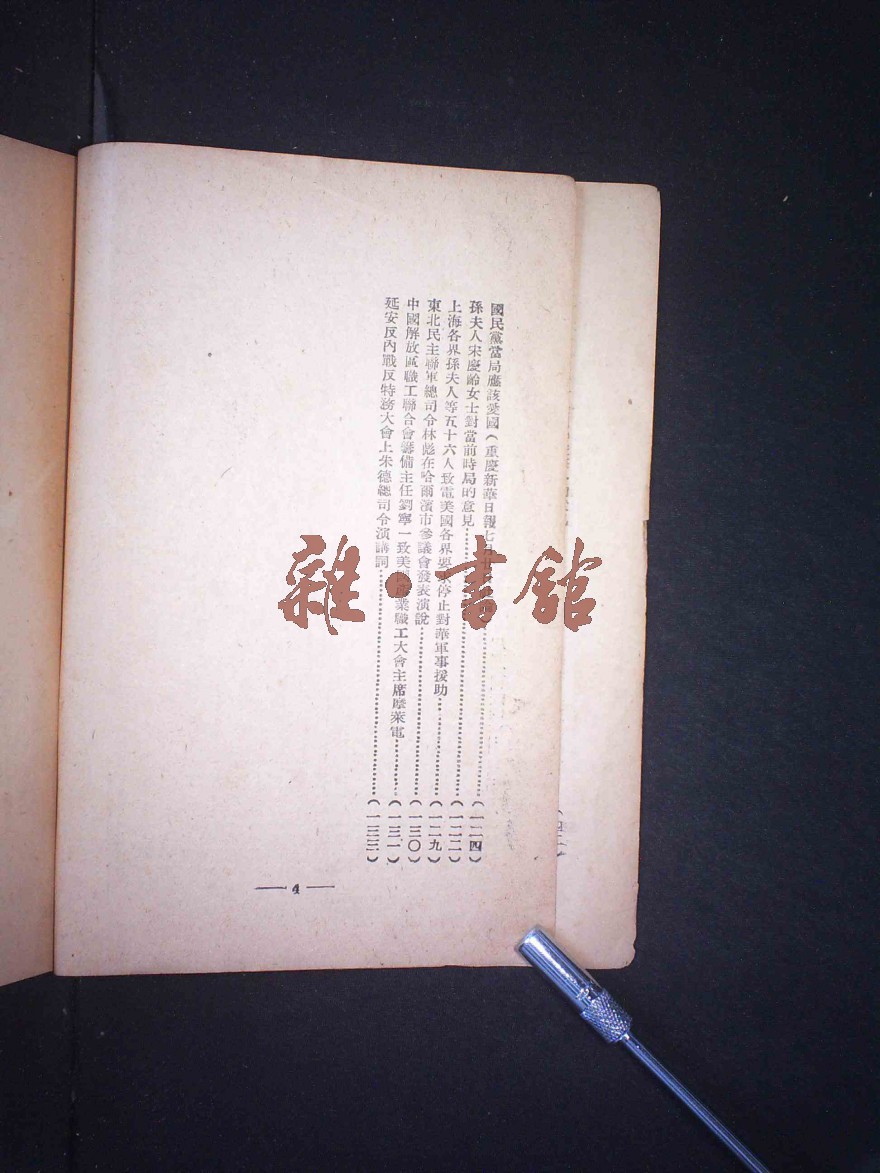 國民黨當局應該愛國（重慶新華日報七月廿
孫夫人宋慶齡女士對當前時局的意見……（一二四）
上海各界孫夫人等五十六人致電美國各界要求停止對華軍事援助……（一二二）
東北民主聯軍總司令林彪在哈爾濱市參議會發表演說……（一二九）
中國解放區職工聯合會籌備主任劉寧一致美國產業職工大會主席摩萊電……（一三〇）
延安反內戰反特務大會上朱德總司令演講詞……（一三一）
（一三三）
— 4 —
雜·書館